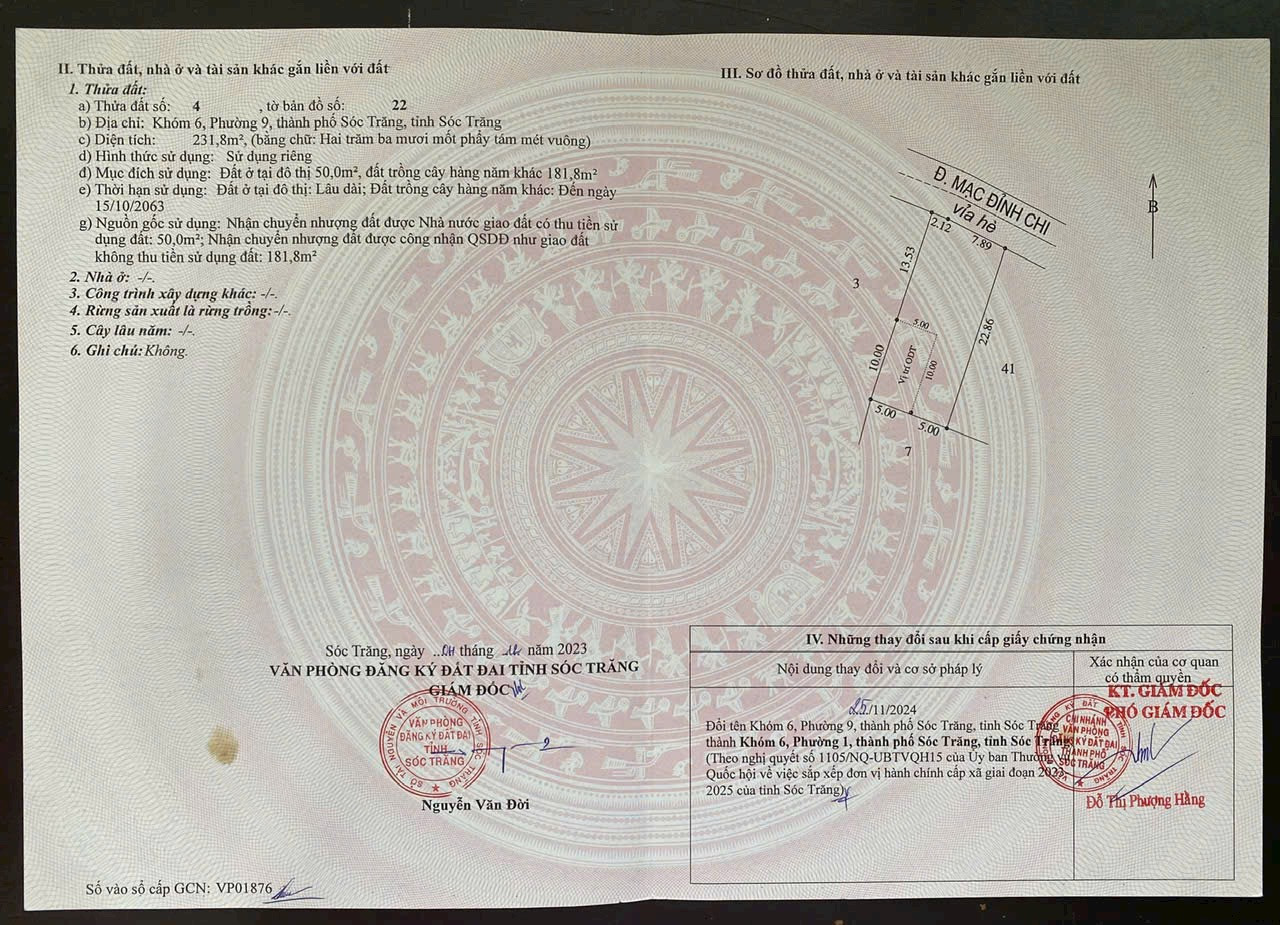 II. Thửa đất, nhà ở và tài sản khác gắn liền với đất
1. Thửa đất:
a) Thửa đất số: 4 , tờ bản đồ số: 22
b) Địa chỉ: Khóm 6, Phường 9, thành phố Sóc Trăng, tỉnh Sóc Trăng
c) Diện tích: 231,8m², (bằng chữ: Hai trăm ba mươi mốt phẩy tám mét vuông)
d) Hình thức sử dụng: Sử dụng riêng
đ) Mục đích sử dụng: Đất ở tại đô thị 50,0m², đất trồng cây hàng năm khác 181,8m²
e) Thời hạn sử dụng: Đất ở tại đô thị: Lâu dài; Đất trồng cây hàng năm khác: Đến ngày
15/10/2063
g) Nguồn gốc sử dụng: Nhận chuyển nhượng đất được Nhà nước giao đất có thu tiền sử
dụng đất: 50,0m²; Nhận chuyển nhượng đất được công nhận QSDĐ như giao đất
không thu tiền sử dụng đất: 181,8m²
2. Nhà ở: -/-.
3. Công trình xây dựng khác: -/-.
4. Rừng sản xuất là rừng trồng: -/-.
5. Cây lâu năm: -/-.
6. Ghi chú: Không.
Sóc Trăng, ngày tháng năm 2023
VĂN PHÒNG ĐĂNG KÝ ĐẤT ĐAI TỈNH SÓC TRĂNG
GIÁM ĐỐC
SỞ TÀI NGUYÊN VÀ MÔI TRƯỜNG TỈNH SÓC TRĂNG
VĂN PHÒNG
ĐĂNG KÝ ĐẤT ĐAI
TỈNH
SÓC TRĂNG
Nguyễn Văn Đời
Số vào sổ cấp GCN: VP01876
III. Sơ đồ thửa đất, nhà ở và tài sản khác gắn liền với đất
Đ. MẠC ĐĨNH CHI
vỉa hè
B
2.12
7.89
13.53
3
5.00
22.86
10.00
Vị trí ODT
10.00
41
5.00
5.00
7
IV. Những thay đổi sau khi cấp giấy chứng nhận
Nội dung thay đổi và cơ sở pháp lý
Xác nhận của cơ quan
có thẩm quyền
25/11/2024
Đổi tên Khóm 6, Phường 9, thành phố Sóc Trăng, tỉnh Sóc Trăng
thành Khóm 6, Phường 1, thành phố Sóc Trăng, tỉnh Sóc Trăng
(Theo nghị quyết số 1105/NQ-UBTVQH15 của Ủy ban Thường vụ
Quốc hội về việc sắp xếp đơn vị hành chính cấp xã giai đoạn 2023-
2025 của tỉnh Sóc Trăng)
KT. GIÁM ĐỐC
PHÓ GIÁM ĐỐC
CHI NHÁNH
VĂN PHÒNG
ĐĂNG KÝ ĐẤT ĐAI
THÀNH PHỐ
SÓC TRĂNG
Đỗ Thị Phượng Hằng